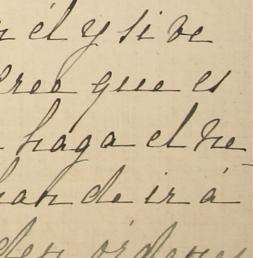 n él y si ve
creo que es
haga el ne
han de ir á
den órdenes